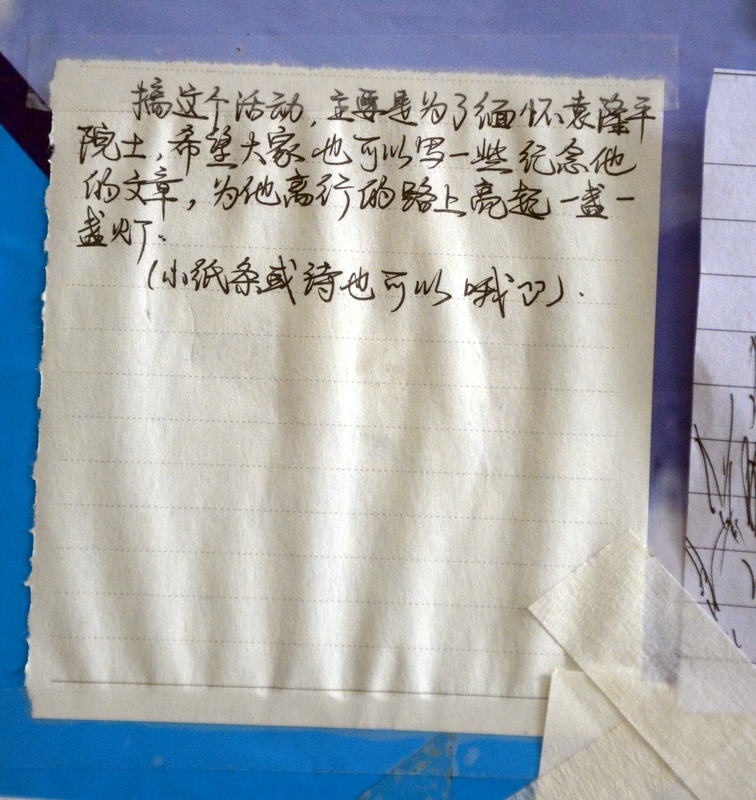 搞这个活动，主要是为了缅怀袁隆平
院士，希望大家也可以写一些纪念他
的文章，为他离行的路上亮起一盏一
盏灯。
（小纸条或诗也可以哦）.